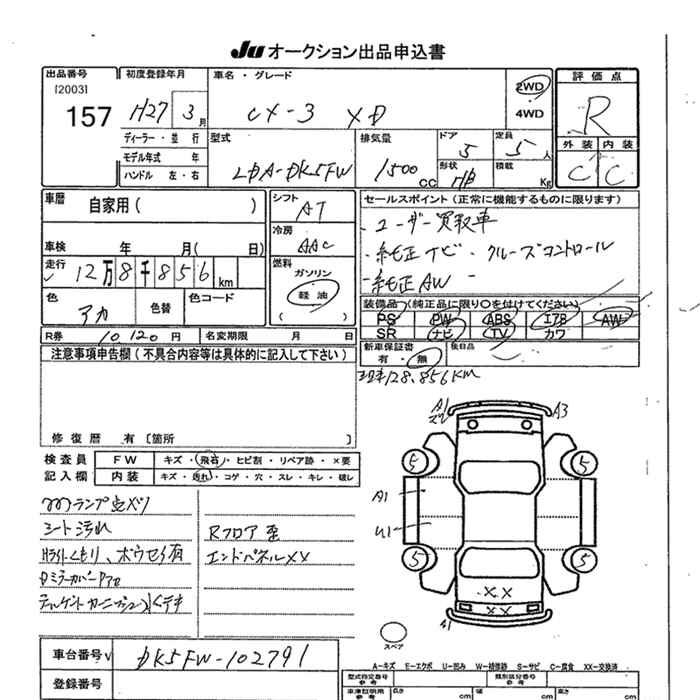 Ju オークション出品申込書
出品番号 初度登録年月 車名・グレード 2WD 評価点
[2003] 157 H27 3月 CX-3 XD 4WD R
ディーラー・並行 型式 排気量 ドア 定員 外装 内装
モデル年式 年 5 5人
ハンドル 左・右 LDA-DK5FW 1500cc 形状 HB 積載 Kg C C
車暦 自家用( ) シフト AT セールスポイント(正常に機能するものに限ります)
・ユーザー買取車
冷房 AAC ・純正ナビ・クルーズコントロール
車検 年 月( 日) ・純正AW -
走行 12万8千856km 燃料 ガソリン 軽油 ( )
装備品(純正品に限り○を付けてください)
色 アカ 色替 色コード PS PW ABS エアB AW
SR ナビ TV カワ
R券 10,120円 名変期限 月 日 新車保証書 有・無 後日品
注意事項申告欄(不具合内容等は具体的に記入して下さい)
現車128,856KM
修復歴 有〔箇所
A1 A3
検査員 FW キズ・飛石・ヒビ割・リペア跡・×要
記入欄 内装 キズ・汚れ・コゲ・穴・スレ・キレ・破レ
5 5
A1
U1
5 5
ランプ点メツ
シート汚れ Rフロア歪
Hライトくもり、ホウセキ有 エンドパネルXX
DミラーカバーPアセ
XX
XX
A1
スペア
車台番号 DK5FW-102791
A-キズ E-エクボ U-凹み W-補修跡 S-サビ C-腐食 XX-交換済
登録番号 型式指定番号 参考 類別区分番号 参考
車庫証明用 参考 長さ cm 幅 cm 高さ cm